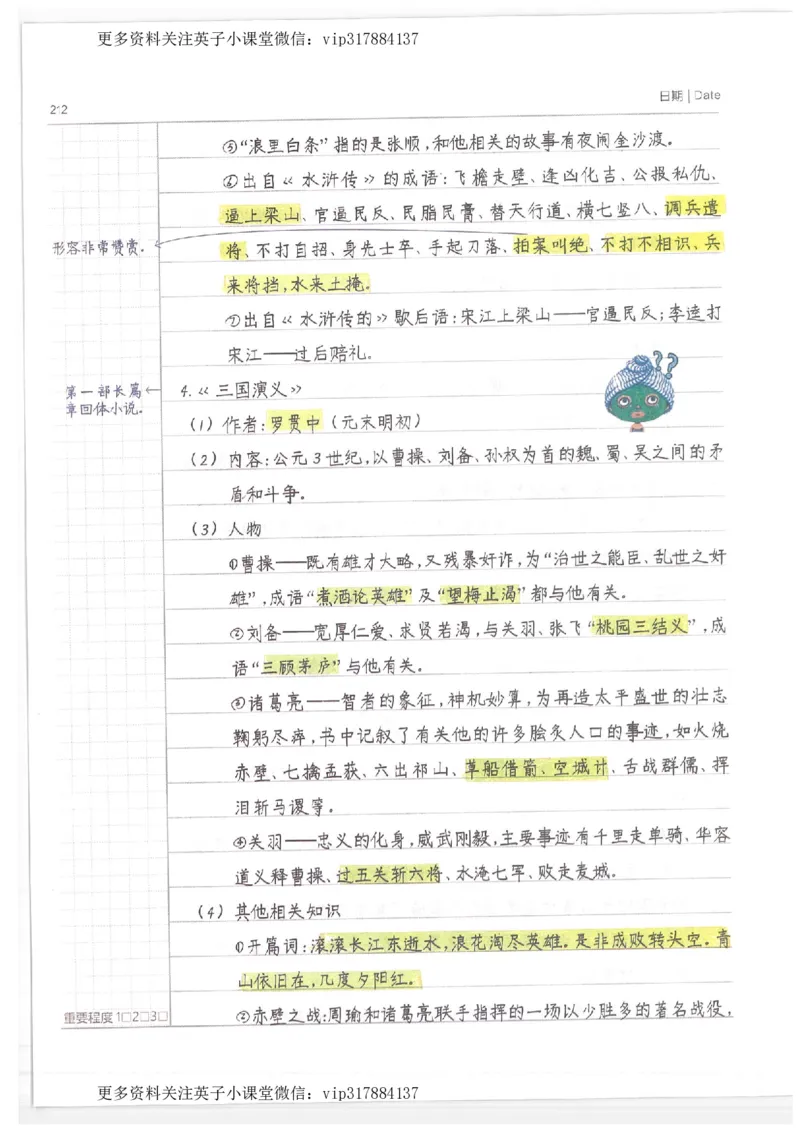 更多资料关注英子小课堂微信：vip317884137
日期 | Date
212
⑤“浪里白条”指的是张顺，和他相关的故事有夜闹金沙渡。
⑥出自《水浒传》的成语：飞檐走壁、逢凶化吉、公报私仇、
逼上梁山、官逼民反、民脂民膏、替天行道、横七竖八、调兵遣
形容非常赞赏。
将、不打自招、身先士卒、手起刀落、拍案叫绝、不打不相识、兵
来将挡，水来土掩。
⑦出自《水浒传的》歇后语：宋江上梁山——官逼民反；李逵打
宋江——过后赔礼。
第一部长篇
章回体小说。
4.《三国演义》
（1）作者：罗贯中（元末明初）
（2）内容：公元3世纪，以曹操、刘备、孙权为首的魏、蜀、吴之间的矛
盾和斗争。
（3）人物
①曹操——既有雄才大略，又残暴奸诈，为“治世之能臣、乱世之奸
雄”，成语“煮酒论英雄”及“望梅止渴”都与他有关。
②刘备——宽厚仁爱、求贤若渴，与关羽、张飞“桃园三结义”，成
语“三顾茅庐”与他有关。
③诸葛亮——智者的象征，神机妙算，为再造太平盛世的壮志
鞠躬尽瘁，书中记叙了有关他的许多脍炙人口的事迹，如火烧
赤壁、七擒孟获、六出祁山、草船借箭、空城计、舌战群儒、挥
泪斩马谡等。
④关羽——忠义的化身，威武刚毅，主要事迹有千里走单骑、华容
道义释曹操、过五关斩六将、水淹七军、败走麦城。
（4）其他相关知识
①开篇词：滚滚长江东逝水，浪花淘尽英雄。是非成败转头空。青
山依旧在，几度夕阳红。
②赤壁之战：周瑜和诸葛亮联手指挥的一场以少胜多的著名战役，
重要程度 1□2□3□
更多资料关注英子小课堂微信：vip317884137